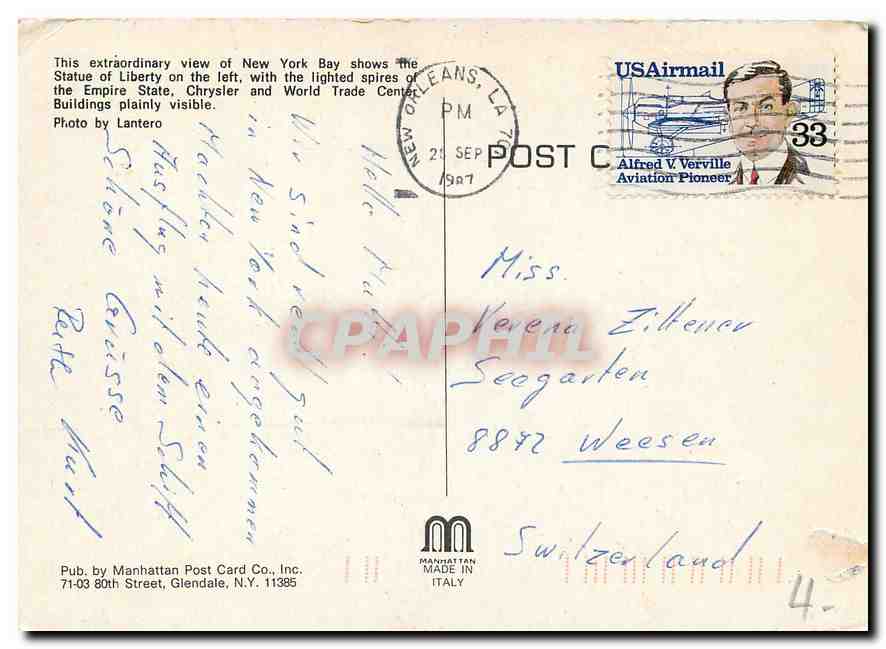 This extraordinary view of New York Bay shows the
Statue of Liberty on the left, with the lighted spires of
the Empire State, Chrysler and World Trade Center
Buildings plainly visible.
Photo by Lantero
NEW ORLEANS, LA 70
PM
SEP
1987
POST C
USAirmail
33
Alfred V. Verville
Aviation Pioneer
Hallo
Wir sind recht gut
in New York angekommen
Machten heute einen
Ausflug mit dem Schiff
Schöne Grüsse
Kurt
Miss.
Verena Zittener
Seegarten
8872 Weesen
Switzerland
CPAPHIL
MANHATTAN
MADE IN
ITALY
Pub. by Manhattan Post Card Co., Inc.
71-03 80th Street, Glendale, N.Y. 11385
4.-